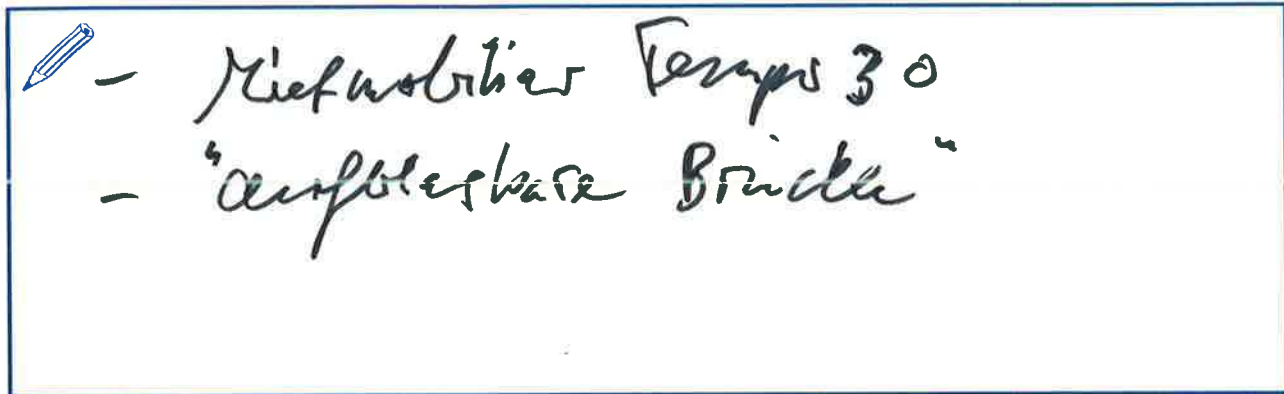 - Mietmobiliar Tempo 30
- "aufblasbare Brücke"